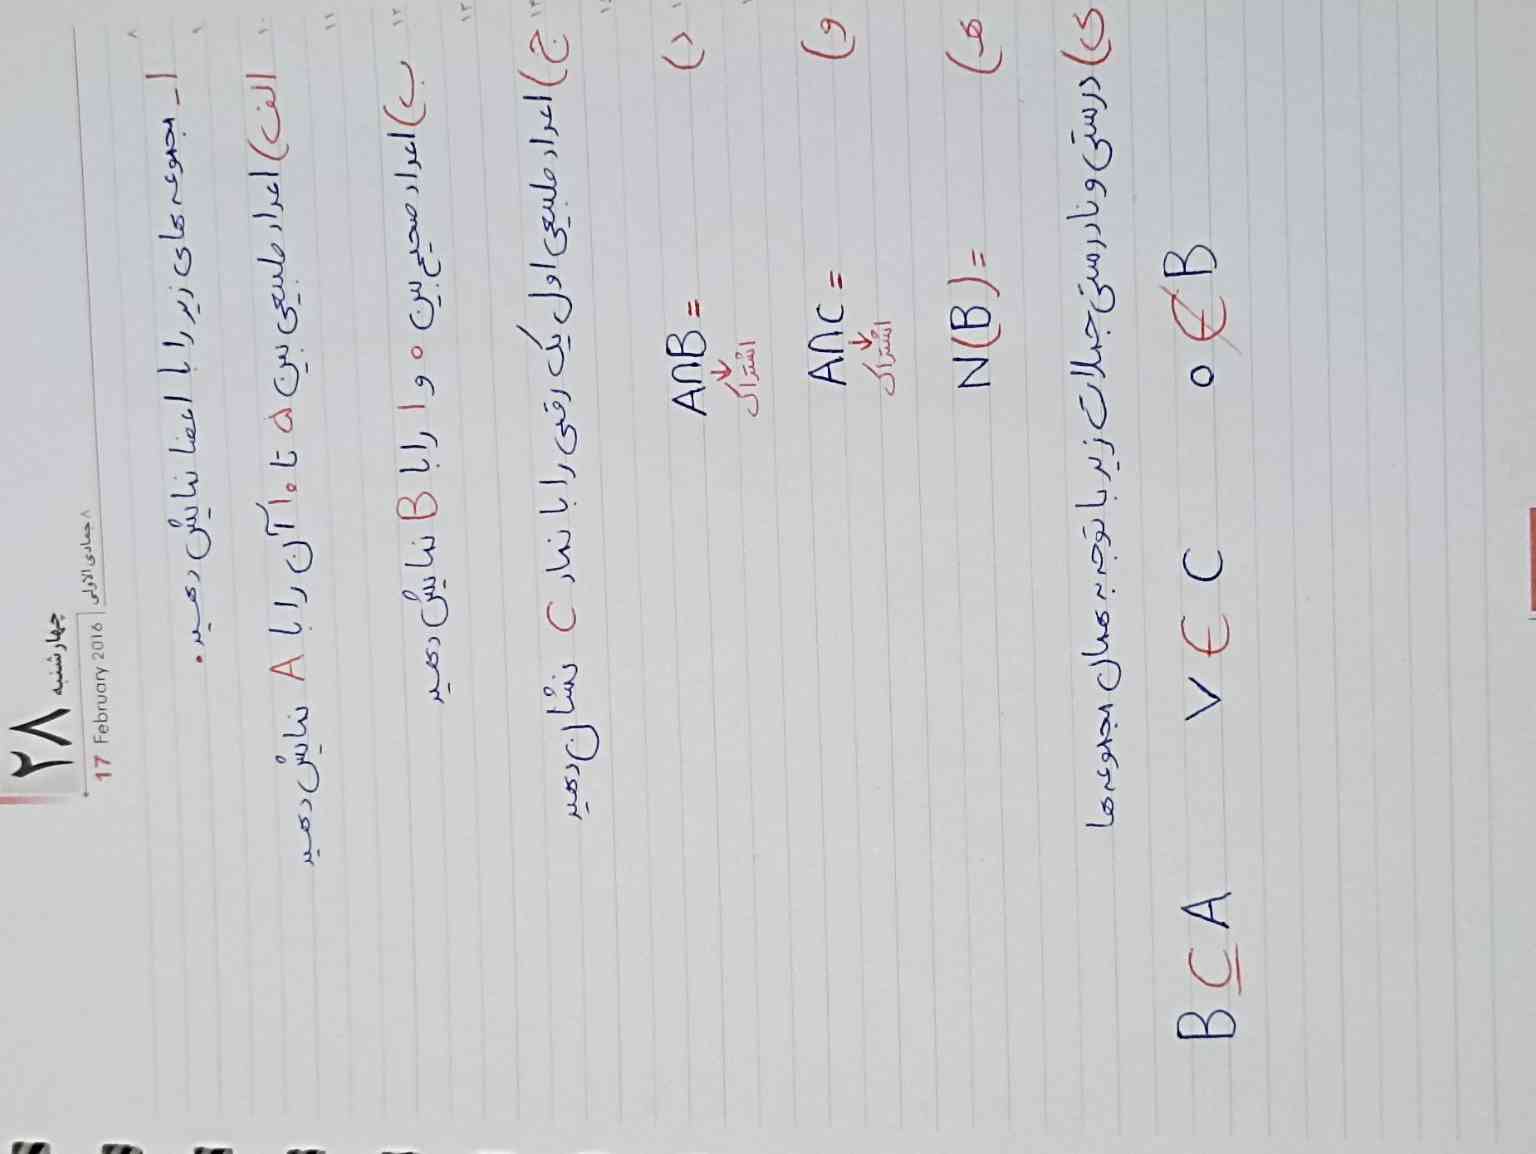 ۲۸
چهارشنبه
17 February 2016
۸ جمادی الاولی
۸
۹
۱۰
۱۱
۱۲
۱۳
۱۴
۱۵
۱ـ مجموعه های زیر را با اعضا نمایش دهید.
الف) اعداد طبیعی بین ۵ تا ۱۰ آن را با A نمایش دهید
ب) اعداد صحیح بین ۰ و ۱ را با B نمایش دهید
ج) اعداد طبیعی اول یک رقمی را با نماد C نشان دهید
د) A∩B =
اشتراک
و) A∩C =
اشتراک
هـ) N(B) =
ی) درستی و نادرستی جملات زیر با توجه به همان مجموعه ها
۰ ∉ B
۷ ∈ C
B ⊆ A